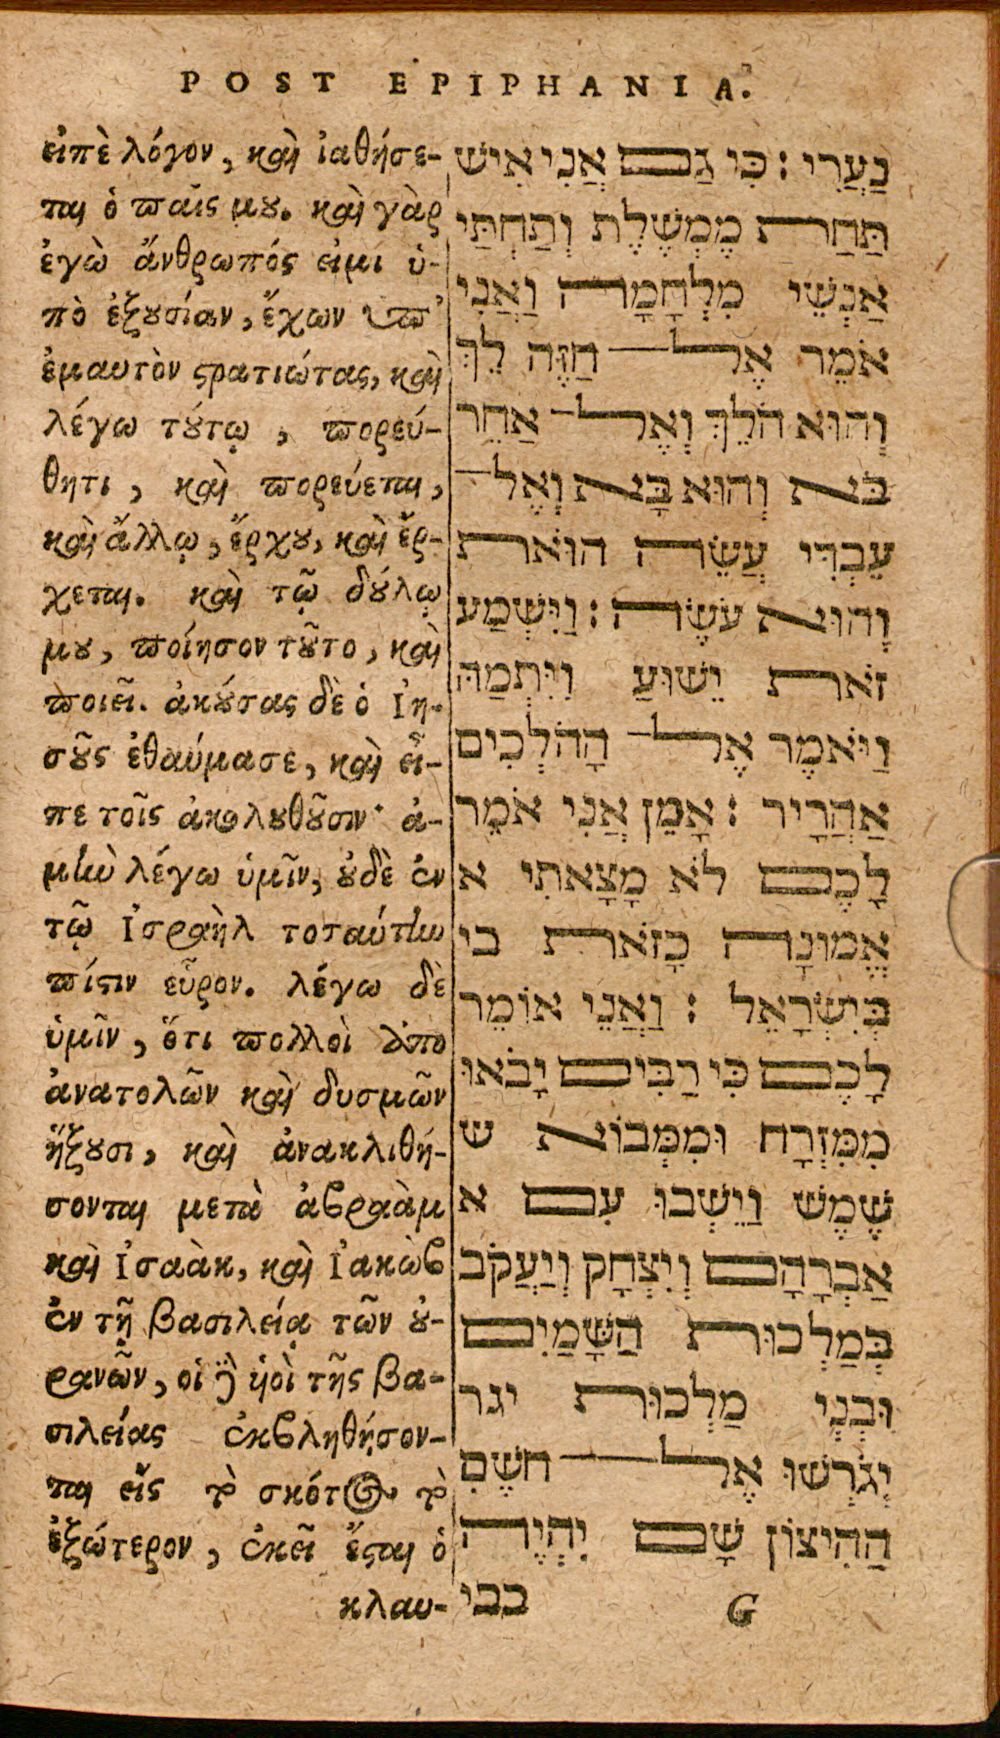 POST EPIPHANIA.
εἰπὲ λόγον, καὶ ἰαθήσε-
ται ὁ παῖς μȣ. καὶ γὰρ
ἐγὼ ἄνθρωπός εἰμι ὑ-
πὸ ἐξȣσίαν, ἔχων ὑπ'
ἐμαυτὸν ϛρατιώτας, καὶ
λέγω τȣ́τῳ, πορεύ-
θητι, καὶ πορεύεται,
καὶ ἄλλῳ, ἔρχȣ, καὶ ἔρ-
χεται. καὶ τῷ δȣ́λῳ
μȣ, ποίησον τȣ͂το, καὶ
ποιεῖ. ἀκȣ́σας δὲ ὁ Ἰη-
σȣ͂ς ἐθαύμασε, καὶ εἶ-
πε τοῖς ἀκολȣθȣ͂σιν· ἀ-
μὴν λέγω ὑμῖν, ȣ̓δὲ ἐν
τῷ Ἰσραὴλ τοταύτην
πίϛιν εὗρον. λέγω δὲ
ὑμῖν, ὅτι πολλοὶ ἀπὸ
ἀνατολῶν καὶ δυσμῶν
ἥξȣσι, καὶ ἀνακλιθή-
σονται μετὰ ἀβραὰμ
καὶ Ἰσαὰκ, καὶ Ἰακὼβ
ἐν τῇ βασιλείᾳ τῶν ȣ̓-
ρανῶν, οἱ δὲ ὑοὶ τῆς βα-
σιλείας ἐκβληθήσον-
ται εἰς τὸ σκότος τὸ
ἐξώτερον, ἐκεῖ ἔϛαι ὁ
κλαυ-
נַעֲרִי : כִּי גַם אֲנִי אִישׁ
תַּחַת מֶמְשֶׁלֶת וְתַחְתַּי
אַנְשֵׁי מִלְחָמָה וַאֲנִי
אֹמֵר אֶל חַזֶּה לֵךְ
וְהוּא הֹלֵךְ וְאֶל אַחֵר
בֹּא וְהוּא בָּא וְאֶל
עַבְדִּי עֲשֵׂה הוֹּאת
וְהוּא עֹשֶׂה : וַיִּשְׁמַע
זֹאת יֵשׁוּעַ וַיִּתְמַהּ
וַיֹּאמֶר אֶל הָהֹלְכִים
אַהֲרָיו : אָמֵן אֲנִי אֹמֵר
לָכֶם לֹא מָצָאתִי א
אֱמוּנָה כָזֹאת בי
בְּיִשְׂרָאֵל : וַאֲנִי אוֹמֵר
לָכֶם כִּי רַבִּים יָבֹאוּ
מִמִּזְרָח וּמִמְּבוֹא ש
שֶׁמֶשׁ וַיֵשְׁבוּ עִם א
אַבְרָהָם וְיִצְחָק וְיַעֲקֹב
בְּמַלְכוּת הַשָּׁמַיִם
וּבְנֵי מַלְכוּת יגר
יְגֹרְשׁוּ אֶל חשֶׁם
הַהִיצוֹן שָׁם יִהְיֶה
בבי
G